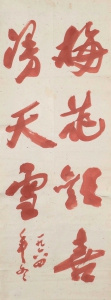 梅花歡喜
漫天雪
一九六四